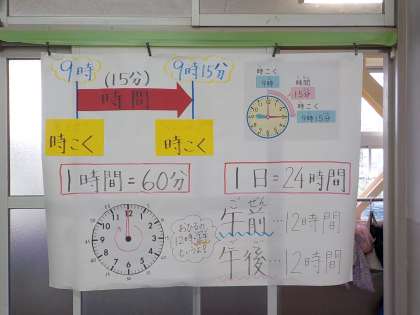 9時
(15分)
9時15分
時間
時こく
時こく
時こく
9時
時間
15分
時こく
9時15分
1時間=60分
1日=24時間
ごぜん
午前…12時間
ごご
午後…12時間
おひるの
12時は